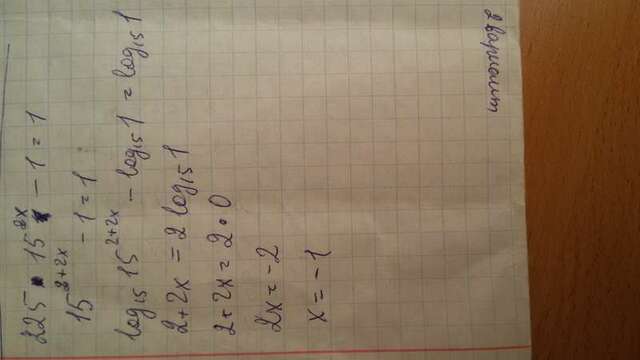 225 · 15^2x - 1 = 1
15^2+2x - 1 = 1
log₁₅ 15^2+2x - log₁₅ 1 = log₁₅ 1
2 + 2x = 2 log₁₅ 1
2 + 2x = 2 · 0
2x = -2
x = -1
2 вариант